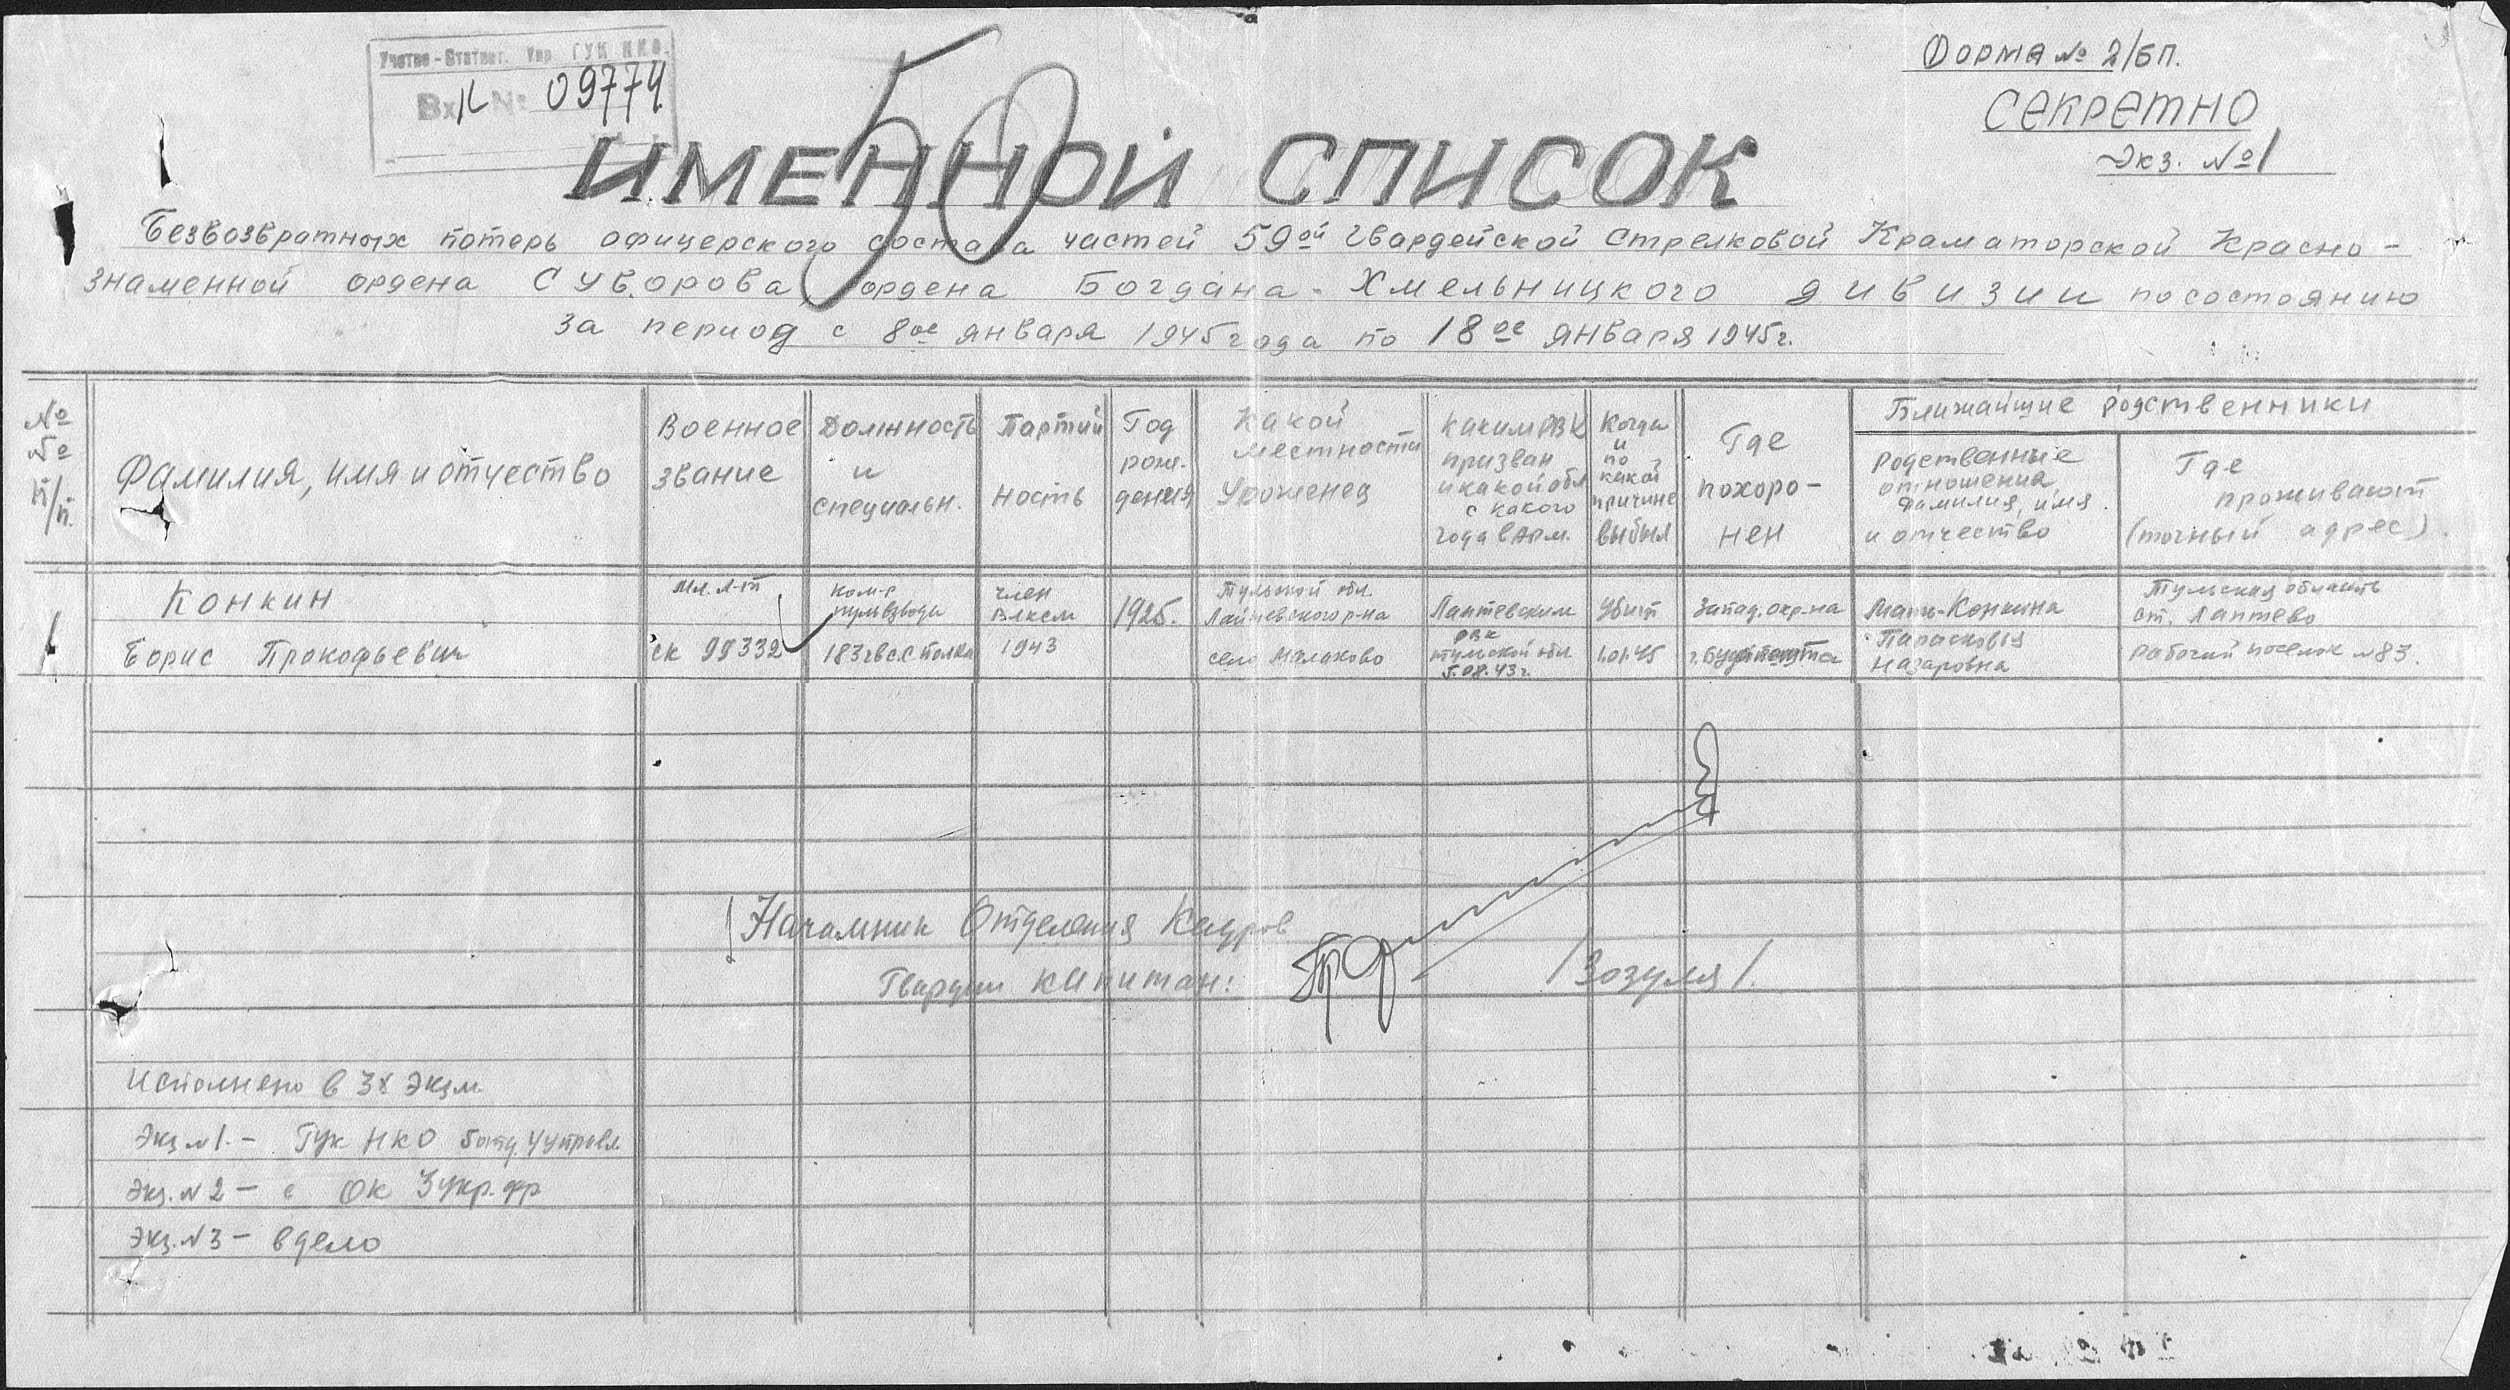 Учетно-Статист. Упр. ГУК НКО.
Вх № 09774
50
Форма № 2/БП.
СЕКРЕТНО
Экз. №1
ИМЕННОЙ СПИСОК
Безвозвратных потерь офицерского состава частей 59ой Гвардейской Стрелковой Краматорской Красно-
знаменной ордена Суворова, ордена Богдана-Хмельницкого дивизии по состоянию
за период с 8ое января 1945 года по 18ое января 1945г.
№ № п/п.
Фамилия, имя и отчество
Военное звание
Должность и специальн.
Партийность
Год рождения
Какой местности Уроженец
Каким РВК призван и какой обл с какого года в Арм.
Когда и по какой причине выбыл
Где похоро-нен
Ближайшие родственники
Родственные отношения, фамилия, имя и отчество
Где проживают (точный адрес).
1
Конкин
Борис Прокофьевич
Мл. л-т
ск 99332
ком-р пульвзвода
183 гвсс полка
член ВЛКСМ
1943
1925.
Тульской обл.
р-на
село Малахово
Лаптевским
РВК
Тульской обл
5.08.43г.
Убит
1.01.45
Запад. окр-на
г. Будапешта
Мать-Конкина
Парасковья
Назаровна
Тульская область
ст. Лаптево
рабочий поселок №83.
Начальник Отделения Кадров
Гвардии капитан:
/Зозуля/.
Исполнено в 3х Экзм
Экз №1.- ГУК НКО
Экз. №2 - ОК 3 Укр. фр
Экз. №3 - в дело